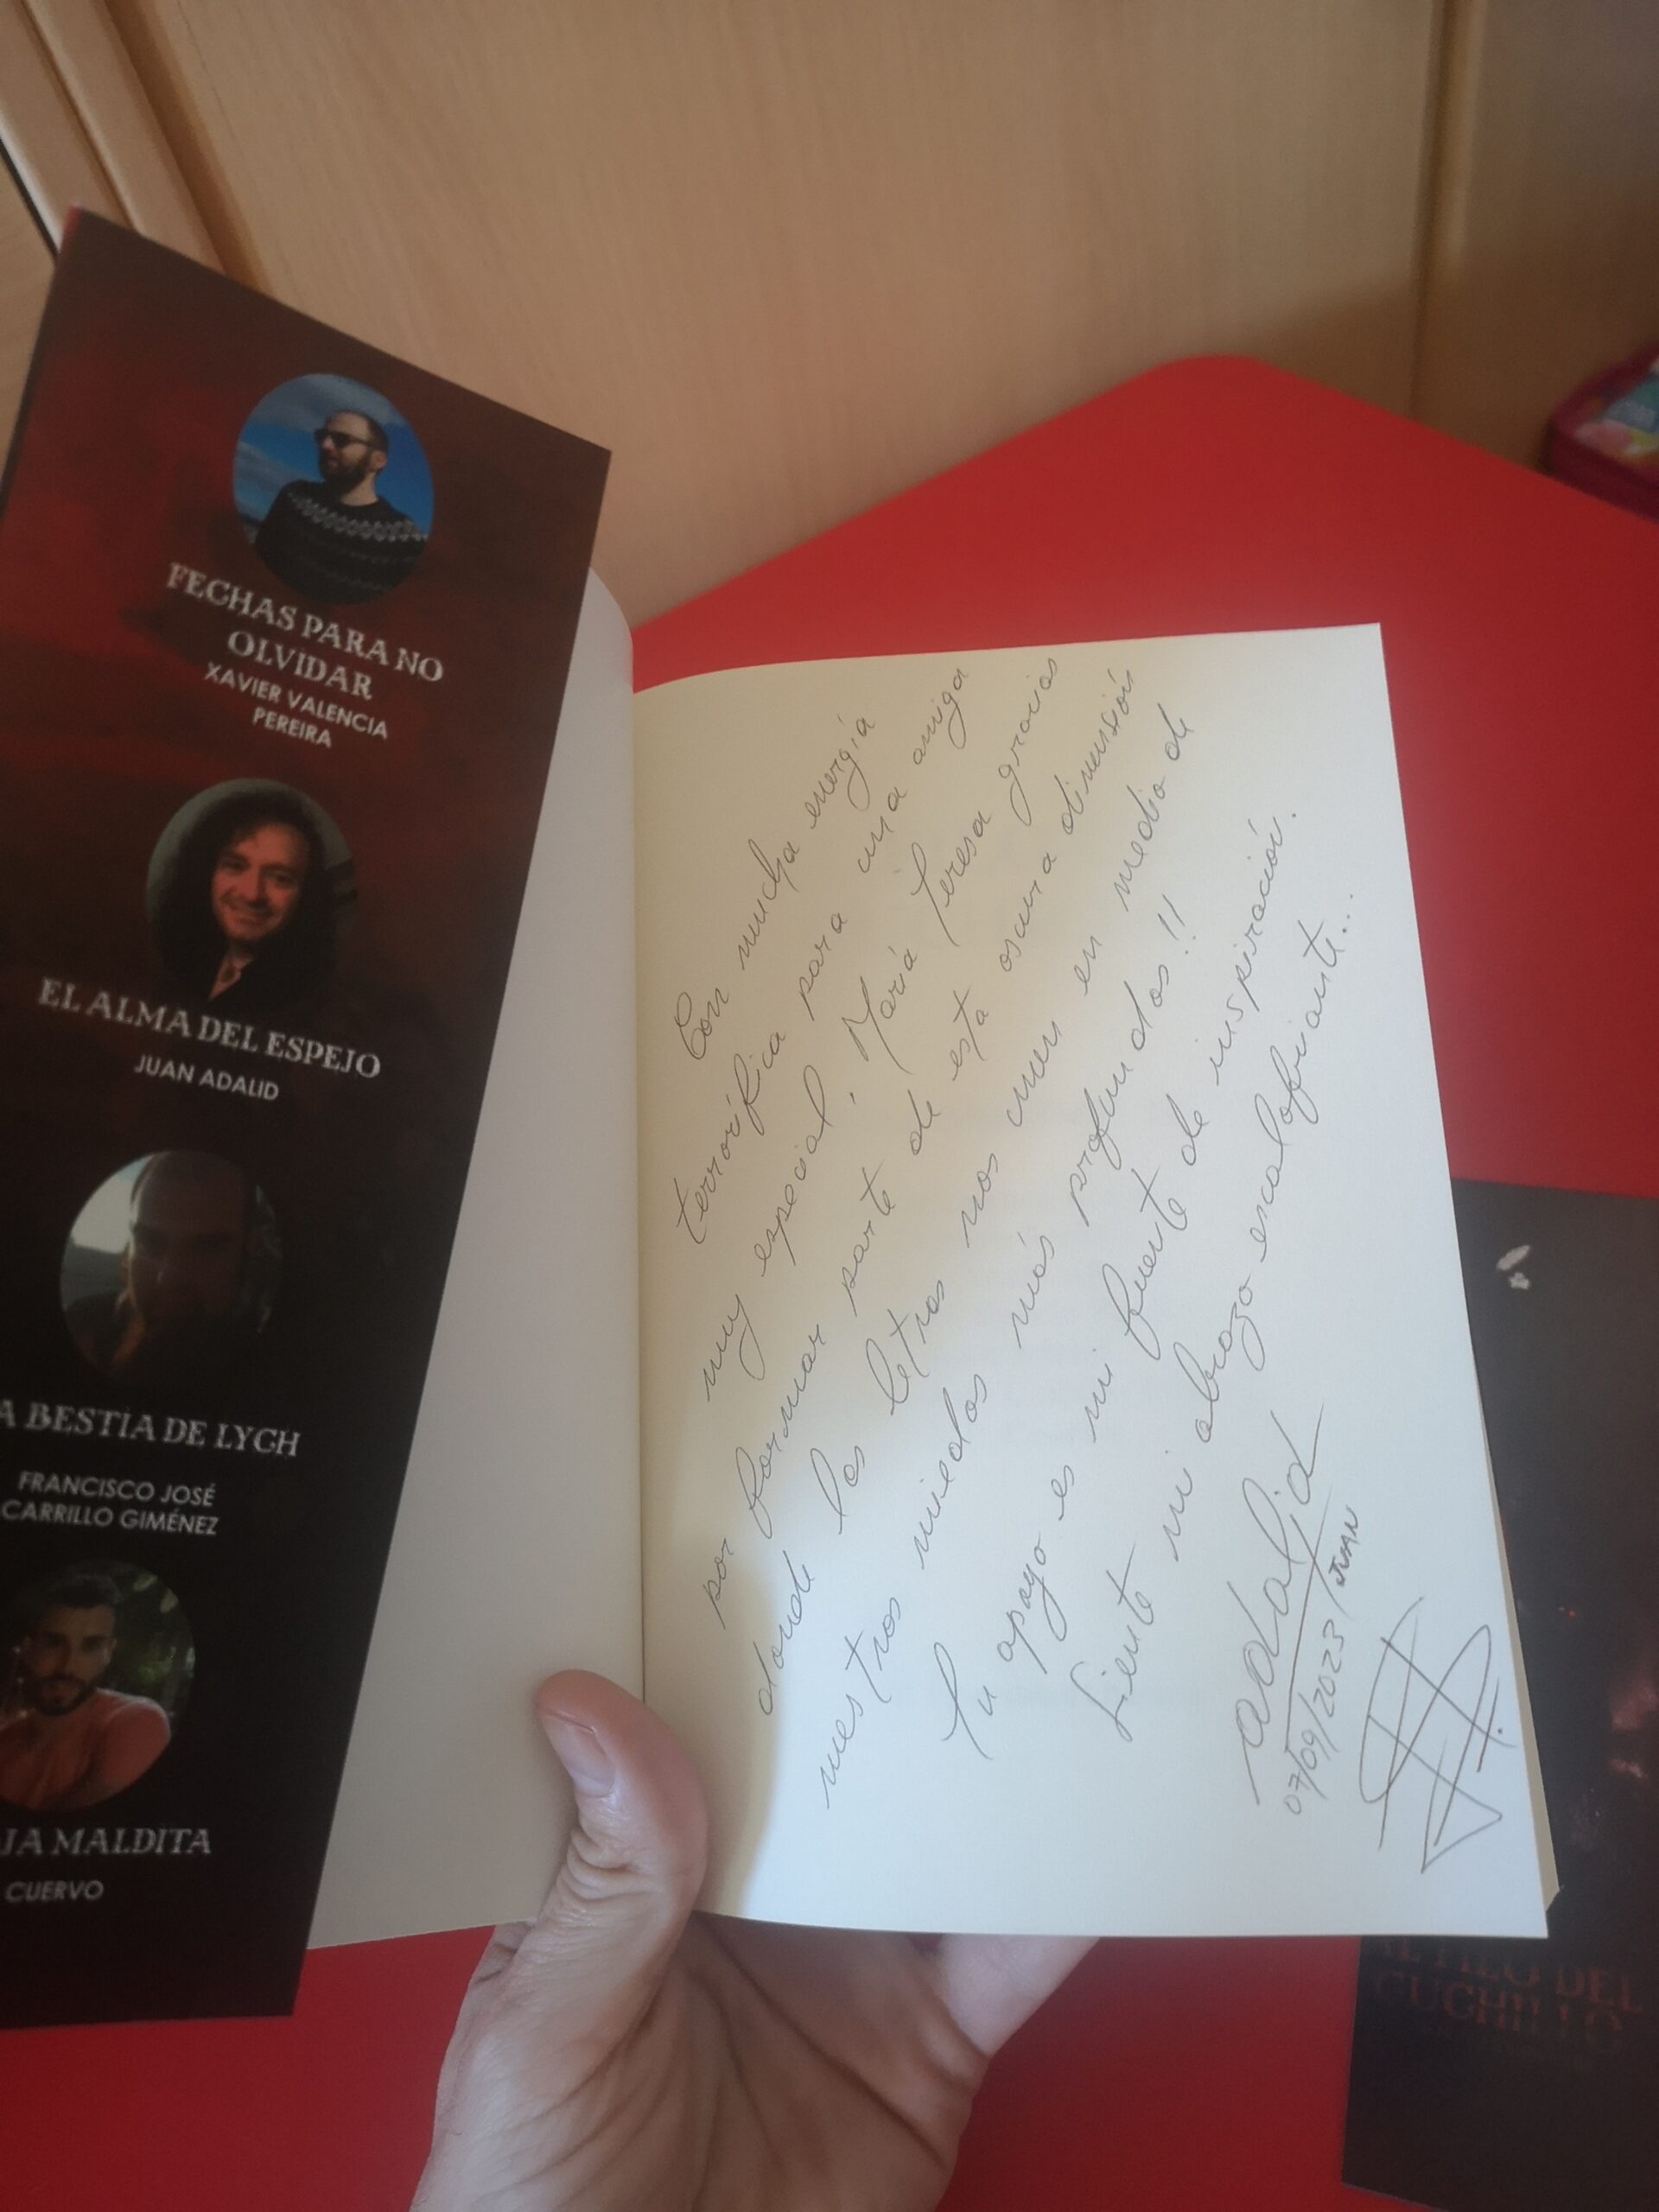 FECHAS PARA NO
OLVIDAR
XAVIER VALENCIA
PEREIRA
EL ALMA DEL ESPEJO
JUAN ADALID
A BESTIA DE LYCH
FRANCISCO JOSÉ
CARRILLO GIMÉNEZ
JA MALDITA
CUERVO
Con mucha energía
terrorífica para una amiga
muy especial. María Teresa gracias
por formar parte de esta oscura dimensión
donde las letras nos unen en medio de
nuestros miedos más profundos!!
Tu apoyo es mi fuente de inspiración.
Siente mi abrazo escalofriante...
adalid
07/09/2023 JUAN
AL FILO DEL
CUCHILLO